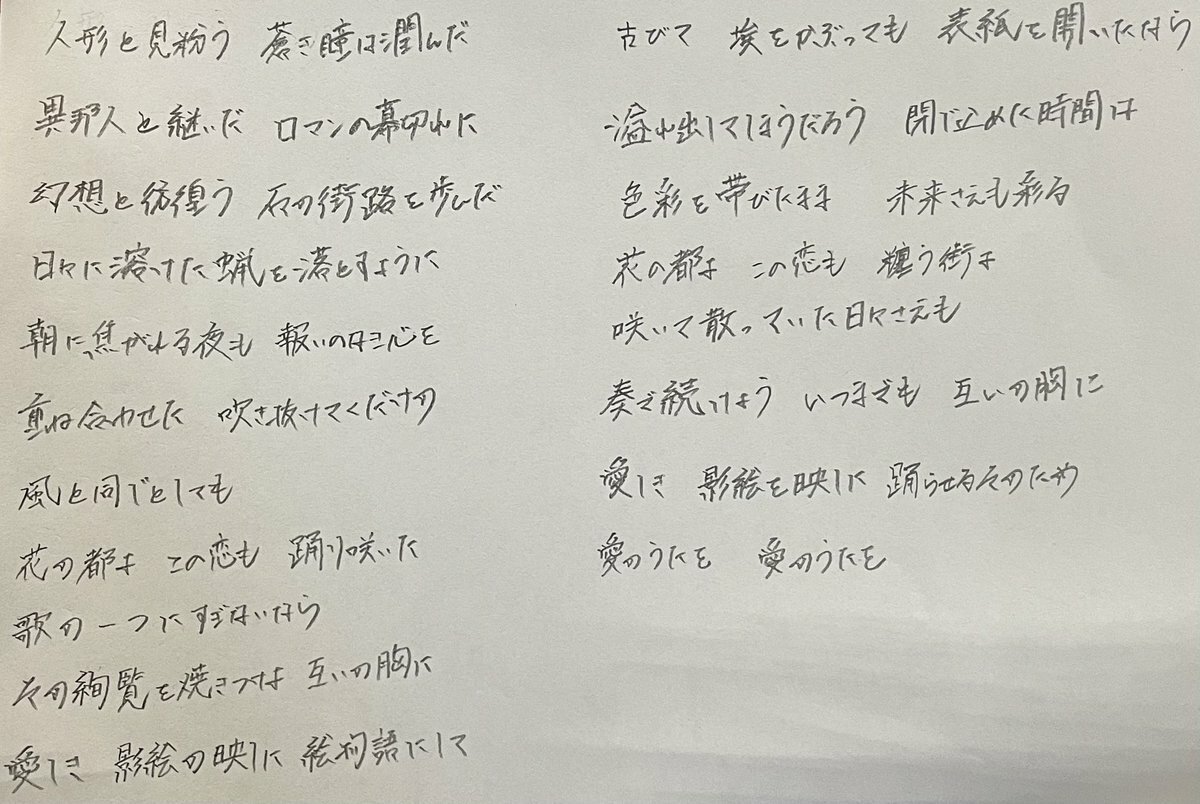 人形と見紛う 蒼き瞳は潤んだ
異邦人と継いだ ロマンの幕切れに
幻想と彷徨う 石の街路を歩んだ
日々に溶けた蝋を落とすように
朝に焦がれる夜も 報いの母心を
重ね合わせた 吹き抜けてくだけの
風と同じとしても
花の都よ この恋も 踊り咲いた
歌の一つにすぎないなら
その絢覧を焼きつけよ 互いの胸に
愛しき 影絵の映しに 絵物語にして
古びて 埃をかぶっても 表紙を開いたなら
溢れ出してしまうだろう 閉じ止めた時間は
色彩を帯びたまま 未来さえも彩る
花の都よ この恋も 纏う街よ
咲いて散っていた日々さえも
奏で続けよう いつまでも 互いの胸に
愛しき 影絵を映しに 踊らせるそのため
愛のうたを 愛のうたを